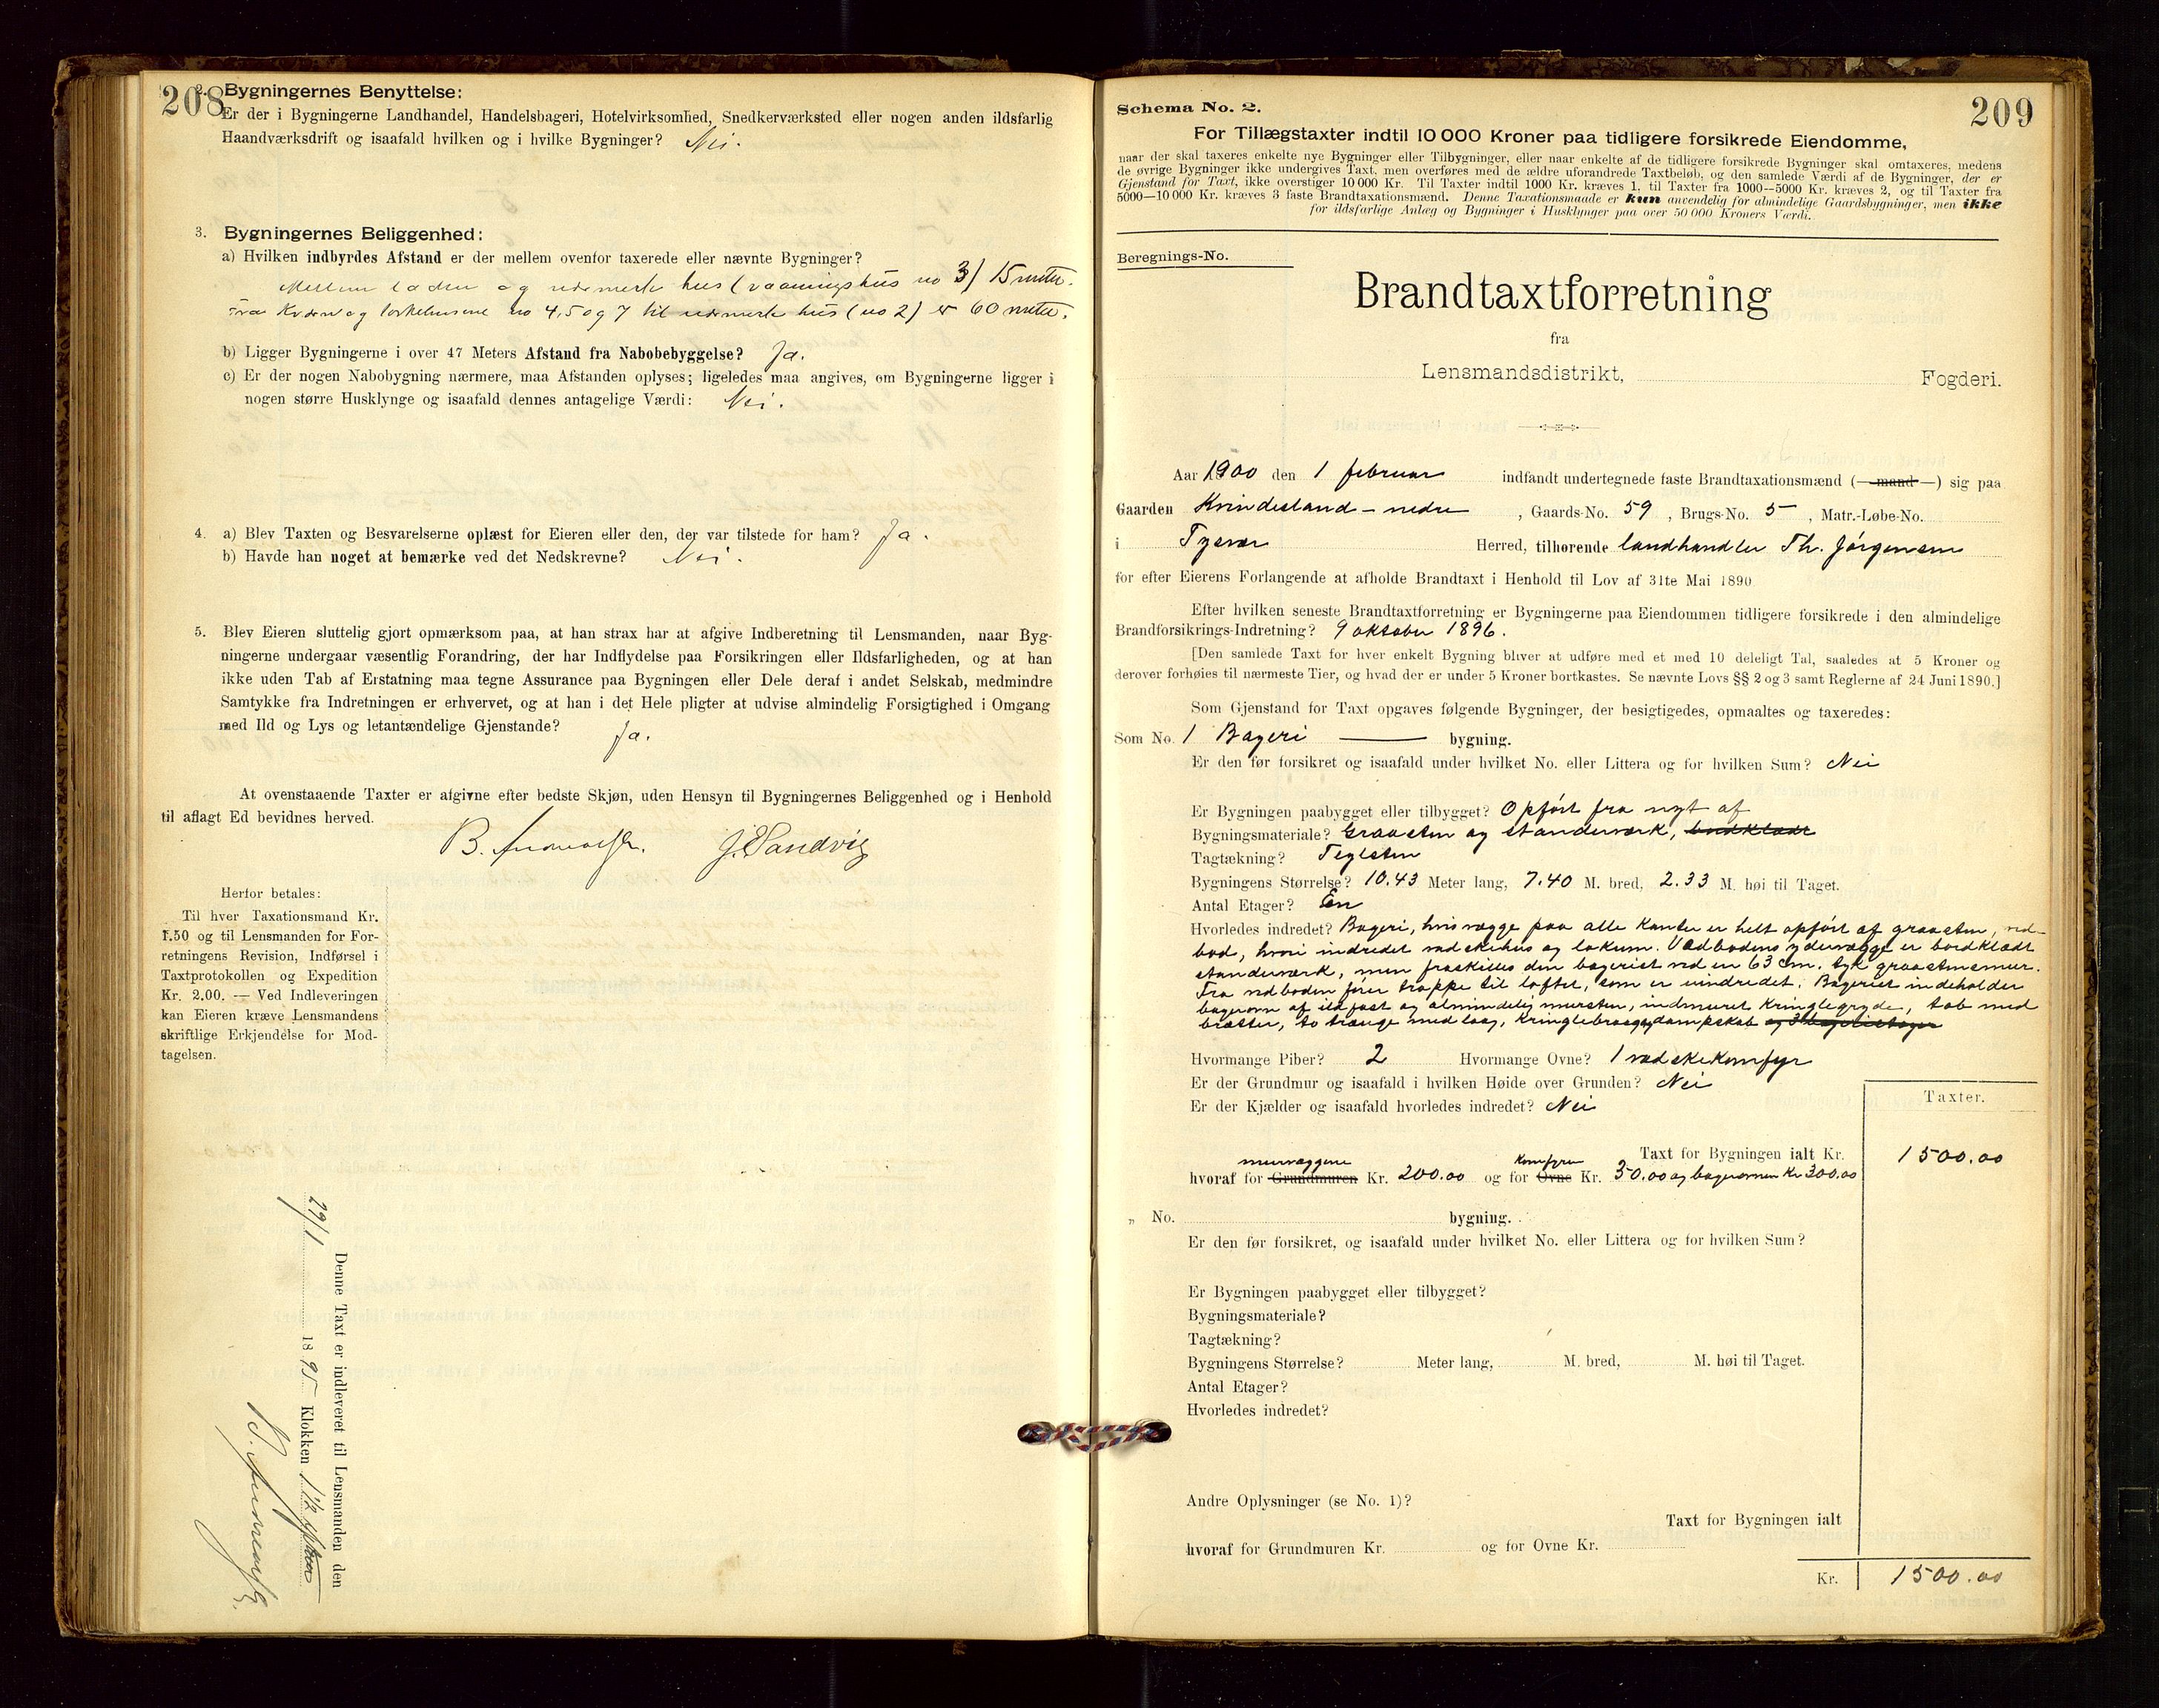 208
2. Bygningernes Benyttelse:
Er der i Bygningerne Landhandel, Handelsbageri, Hotelvirksomhed, Snedkerværksted eller nogen anden ildsfarlig
Haandværksdrift og isaafald hvilken og i hvilke Bygninger? Nei.
3. Bygningernes Beliggenhed:
a) Hvilken indbyrdes Afstand er der mellem ovenfor taxerede eller nævnte Bygninger?
Mellem laden og nærmeste hus (vaaningshus no 3) 15 meter.
Fra Kværn og torkehusene no 4, 5 og 7 til nærmeste hus (no 2) er 60 meter.
b) Ligger Bygningerne i over 47 Meters Afstand fra Nabobebyggelse? Ja.
c) Er der nogen Nabobygning nærmere, maa Afstanden oplyses; ligeledes maa angives, om Bygningerne ligger i
nogen større Husklynge og isaafald dennes antagelige Værdi: Nei.
4. a) Blev Taxten og Besvarelserne oplæst for Eieren eller den, der var tilstede for ham? Ja.
b) Havde han noget at bemærke ved det Nedskrevne? Nei.
5. Blev Eieren sluttelig gjort opmærksom paa, at han strax har at afgive Indberetning til Lensmanden, naar Byg-
ningerne undergaar væsentlig Forandring, der har Indflydelse paa Forsikringen eller Ildsfarligheden, og at han
ikke uden Tab af Erstatning maa tegne Assurance paa Bygningen eller Dele deraf i andet Selskab, medmindre
Samtykke fra Indretningen er erhvervet, og at han i det Hele pligter at udvise almindelig Forsigtighed i Omgang
med Ild og Lys og letantændelige Gjenstande? Ja.
At ovenstaaende Taxter er afgivne efter bedste Skjøn, uden Hensyn til Bygningernes Beliggenhed og i Henhold
til aflagt Ed bevidnes herved.
B. J. Sandvig
Herfor betales:
Til hver Taxationsmand Kr.
1.50 og til Lensmanden for For-
retningens Revision, Indførsel i
Taxtprotokollen og Expedition
Kr. 2.00. — Ved Indleveringen
kan Eieren kræve Lensmandens
skriftlige Erkjendelse for Mod-
tagelsen.
Denne Taxt er indleveret til Lensmanden den
29/1 1895 Klokken 1 1/2
209
Schema No. 2.
For Tillægstaxter indtil 10 000 Kroner paa tidligere forsikrede Eiendomme,
naar der skal taxeres enkelte nye Bygninger eller Tilbygninger, eller naar enkelte af de tidligere forsikrede Bygninger skal omtaxeres, medens
de øvrige Bygninger ikke undergives Taxt, men overføres med de ældre uforandrede Taxtbeløb, og den samlede Værdi af de Bygninger, der er
Gjenstand for Taxt, ikke overstiger 10 000 Kr. Til Taxter indtil 1000 Kr. kræves 1, til Taxter fra 1000—5000 Kr. kræves 2, og til Taxter fra
5000—10 000 Kr. kræves 3 faste Brandtaxationsmænd. Denne Taxationsmaade er kun anvendelig for almindelige Gaardsbygninger, men ikke
for ildsfarlige Anlæg og Bygninger i Husklynger paa over 50 000 Kroners Værdi.
Beregnings-No.
Brandtaxtforretning
fra
Lensmandsdistrikt, Fogderi.
Aar 1900 den 1 februar indfandt undertegnede faste Brandtaxationsmænd (—mand—) sig paa
Gaarden Kvindesland - nedre, Gaards-No. 59, Brugs-No. 5, Matr.-Løbe-No.
i Tysvær Herred, tilhørende landhandler Th. Jørgensen
for efter Eierens Forlangende at afholde Brandtaxt i Henhold til Lov af 31te Mai 1890
Efter hvilken seneste Brandtaxtforretning er Bygningerne paa Eiendommen tidligere forsikrede i den almindelige
Brandforsikrings-Indretning? 9 oktober 1896.
[Den samlede Taxt for hver enkelt Bygning bliver at udføre med et med 10 deleligt Tal, saaledes at 5 Kroner og
derover forhøies til nærmeste Tier, og hvad der er under 5 Kroner bortkastes. Se nævnte Lovs §§ 2 og 3 samt Reglerne af 24 Juni 1890.]
Som Gjenstand for Taxt opgaves følgende Bygninger, der besigtigedes, opmaaltes og taxeredes:
Som No. 1 Bageri bygning.
Er den før forsikret og isaafald under hvilket No. eller Littera og for hvilken Sum? Nei
Er Bygningen paabygget eller tilbygget? Opført fra nyt af
Bygningsmateriale? Graasten og standerværk, bordklædt
Tagtækning? Teglsten
Bygningens Størrelse? 10.43 Meter lang, 7.40 M. bred, 2.33 M. høi til Taget.
Antal Etager? En
Hvorledes indredet? Bageri, hvis vægge paa alle kanter er helt opført af graasten, ved-
bod, hvori indredet vadskehus og lokum. Vedbodens ydervægge er bordklædt
standerværk, men fraskilles den bageriet ved en 63 cm. tyk graastensmur.
Fra vedboden fører trappe til loftet, som er uindredet. Bageriet indeholder
bagerovn af ildfast og almindelig mursten, indmuret kringlegryde, tob med
brætter, to trænge med laag, kringlebraagg dampskab og 3 bageritager
Hvormange Piber? 2 Hvormange Ovne? 1 vadskekomfyr
Er der Grundmur og isaafald i hvilken Høide over Grunden? Nei
Er der Kjælder og isaafald hvorledes indredet? Nei
Taxter.
Taxt for Bygningen ialt Kr. 1500.00
murvæggene komfyren
hvoraf for Grundmuren Kr. 200.00 og for Ovne Kr. 30.00 og bagerovnen Kr 300.00
„ No. bygning.
Er den før forsikret, og isaafald under hvilket No. eller Littera og for hvilken Sum?
Er Bygningen paabygget eller tilbygget?
Bygningsmateriale?
Tagtækning?
Bygningens Størrelse? Meter lang, M. bred, M. høi til Taget.
Antal Etager?
Hvorledes indredet?
Andre Oplysninger (se No. 1)?
Taxt for Bygningen ialt
hvoraf for Grundmuren Kr. og for Ovne Kr.
Kr. 1500.00